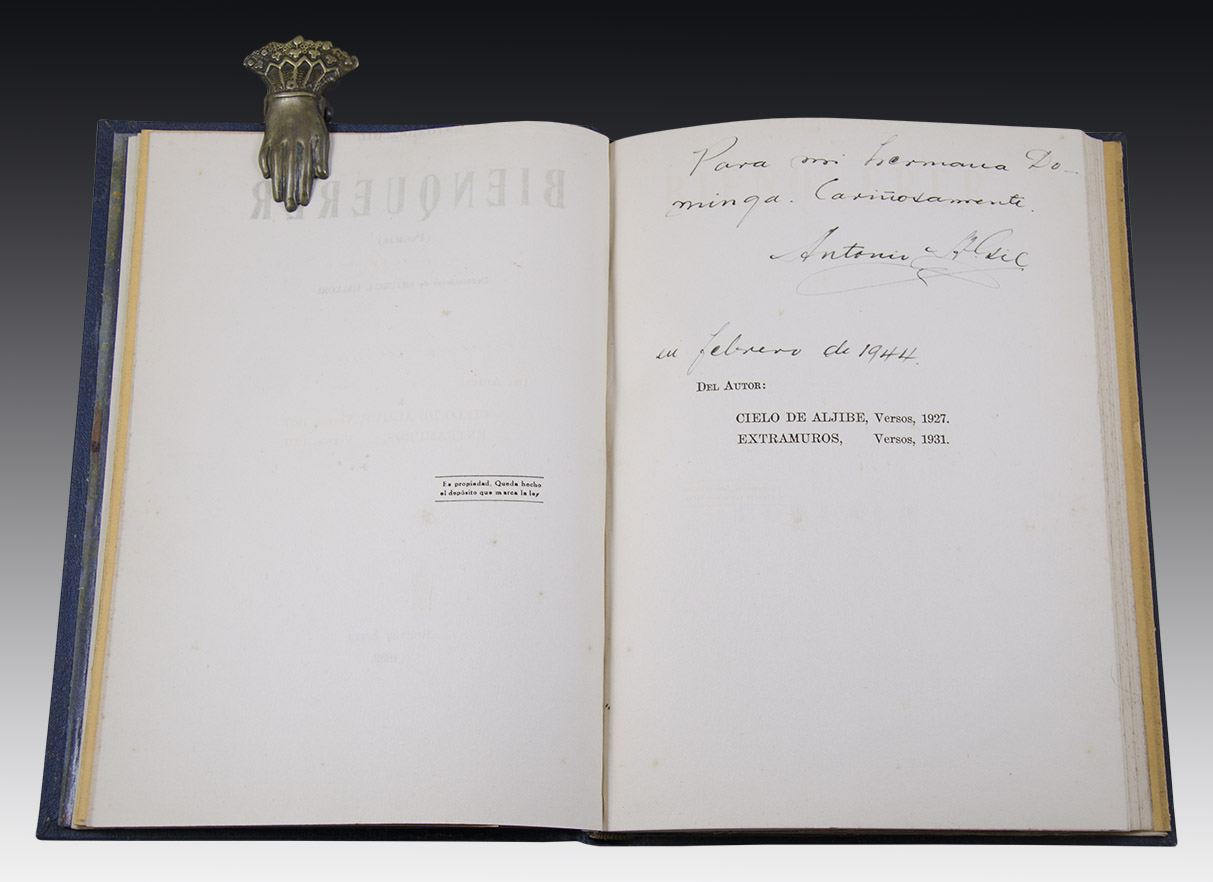 BIENQUERER
Es propiedad. Queda hecho
el depósito que marca la ley
Para mi hermana Do-
minga. Cariñosamente.
Antonio
en febrero de 1944.
DEL AUTOR:
CIELO DE ALJIBE, Versos, 1927.
EXTRAMUROS, Versos, 1931.